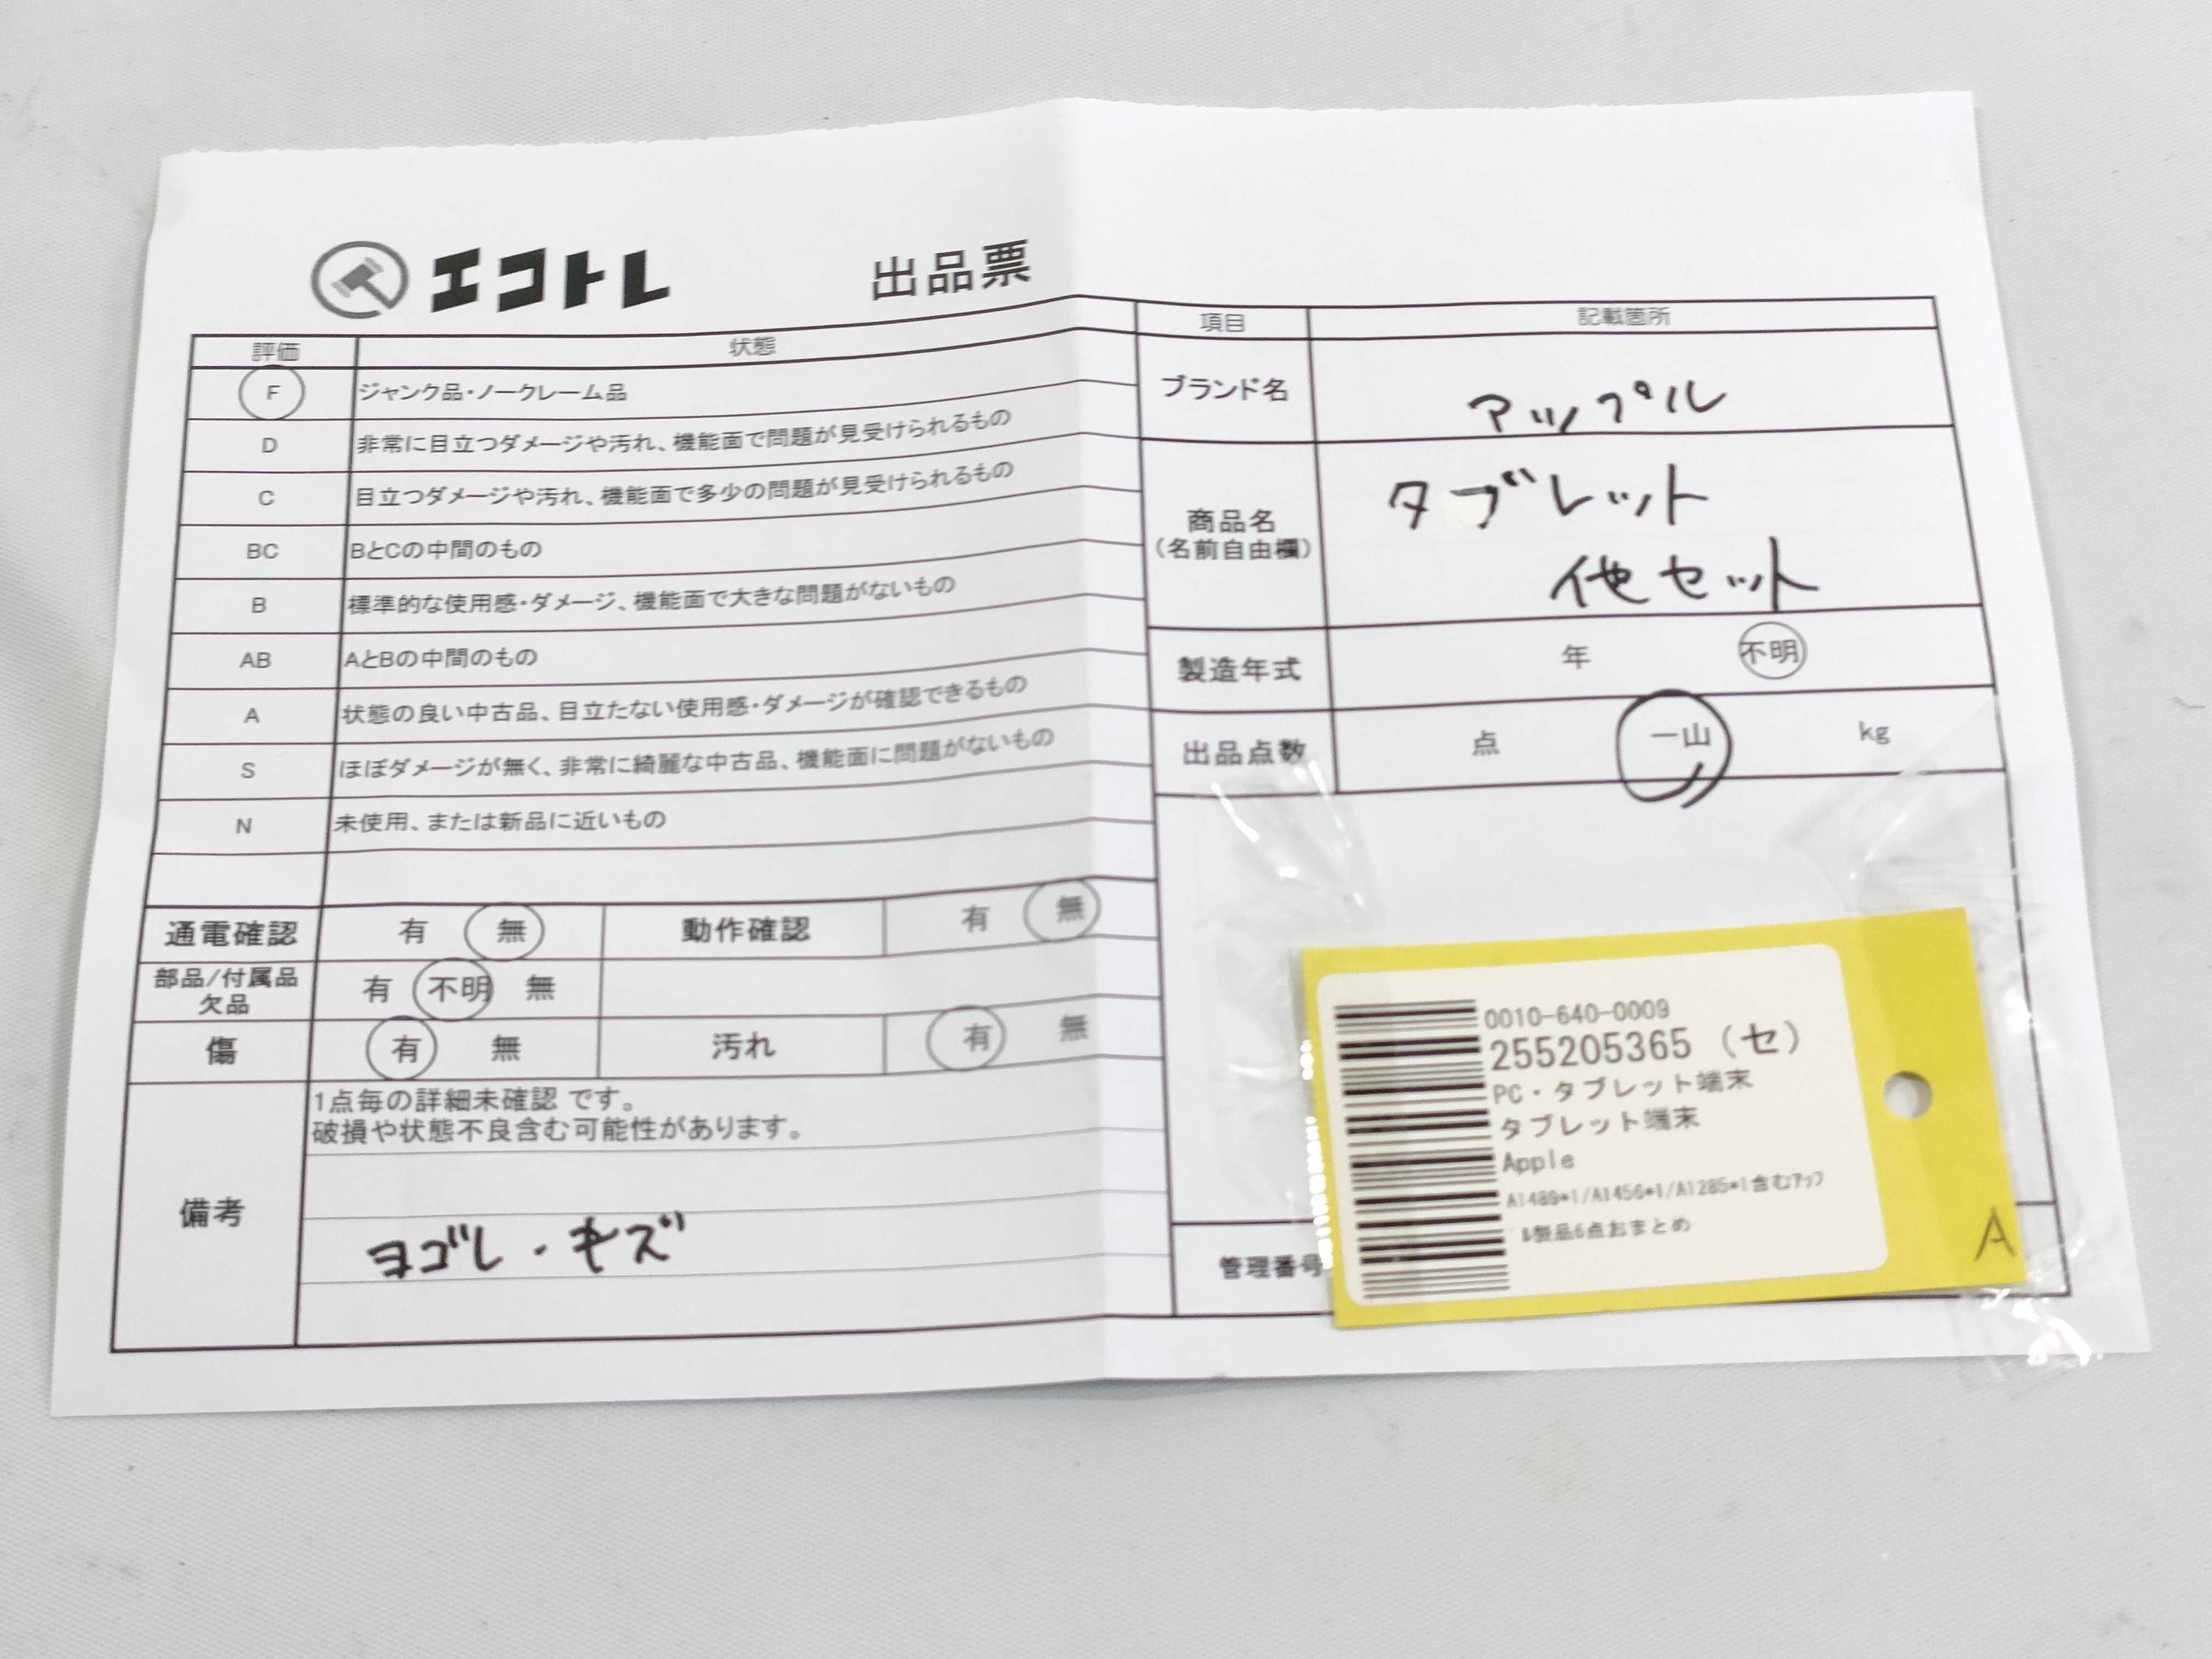 エコトレ 出品票
評価 状態
F ジャンク品・ノークレーム品
D 非常に目立つダメージや汚れ、機能面で問題が見受けられるもの
C 目立つダメージや汚れ、機能面で多少の問題が見受けられるもの
BC BとCの中間のもの
B 標準的な使用感・ダメージ、機能面で大きな問題がないもの
AB AとBの中間のもの
A 状態の良い中古品、目立たない使用感・ダメージが確認できるもの
S ほぼダメージが無く、非常に綺麗な中古品、機能面に問題がないもの
N 未使用、または新品に近いもの
通電確認 有 無 動作確認 有 無
部品/付属品 有 不明 無
欠品
傷 有 無 汚れ 有 無
備考
1点毎の詳細未確認 です。
破損や状態不良含む可能性があります。
ヨゴレ・キズ
項目 記載箇所
ブランド名 アップル
商品名
(名前自由欄)
タブレット
他セット
製造年式 年 不明
出品点数 点 一山 kg
管理番号
0010-640-0009
255205365 (セ)
PC・タブレット端末
タブレット端末
Apple
A1489*1/A1456*1/A1285*1含むアップ
ル製品6点おまとめ
A